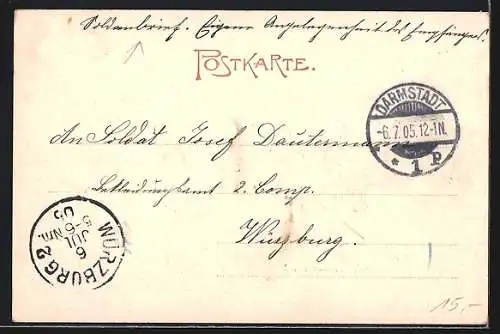 Soldatenbrief. Eigene Angelegenheit des Empfängers.
POSTKARTE.
DARMSTADT
-6.7.05.12-1N.
* 1 P
An Soldat Josef Dautermann
Bekleidungsamt 2. Comp.
Würzburg.
WÜRZBURG 2
6
JUL
5-6 Nm.
05
15,-